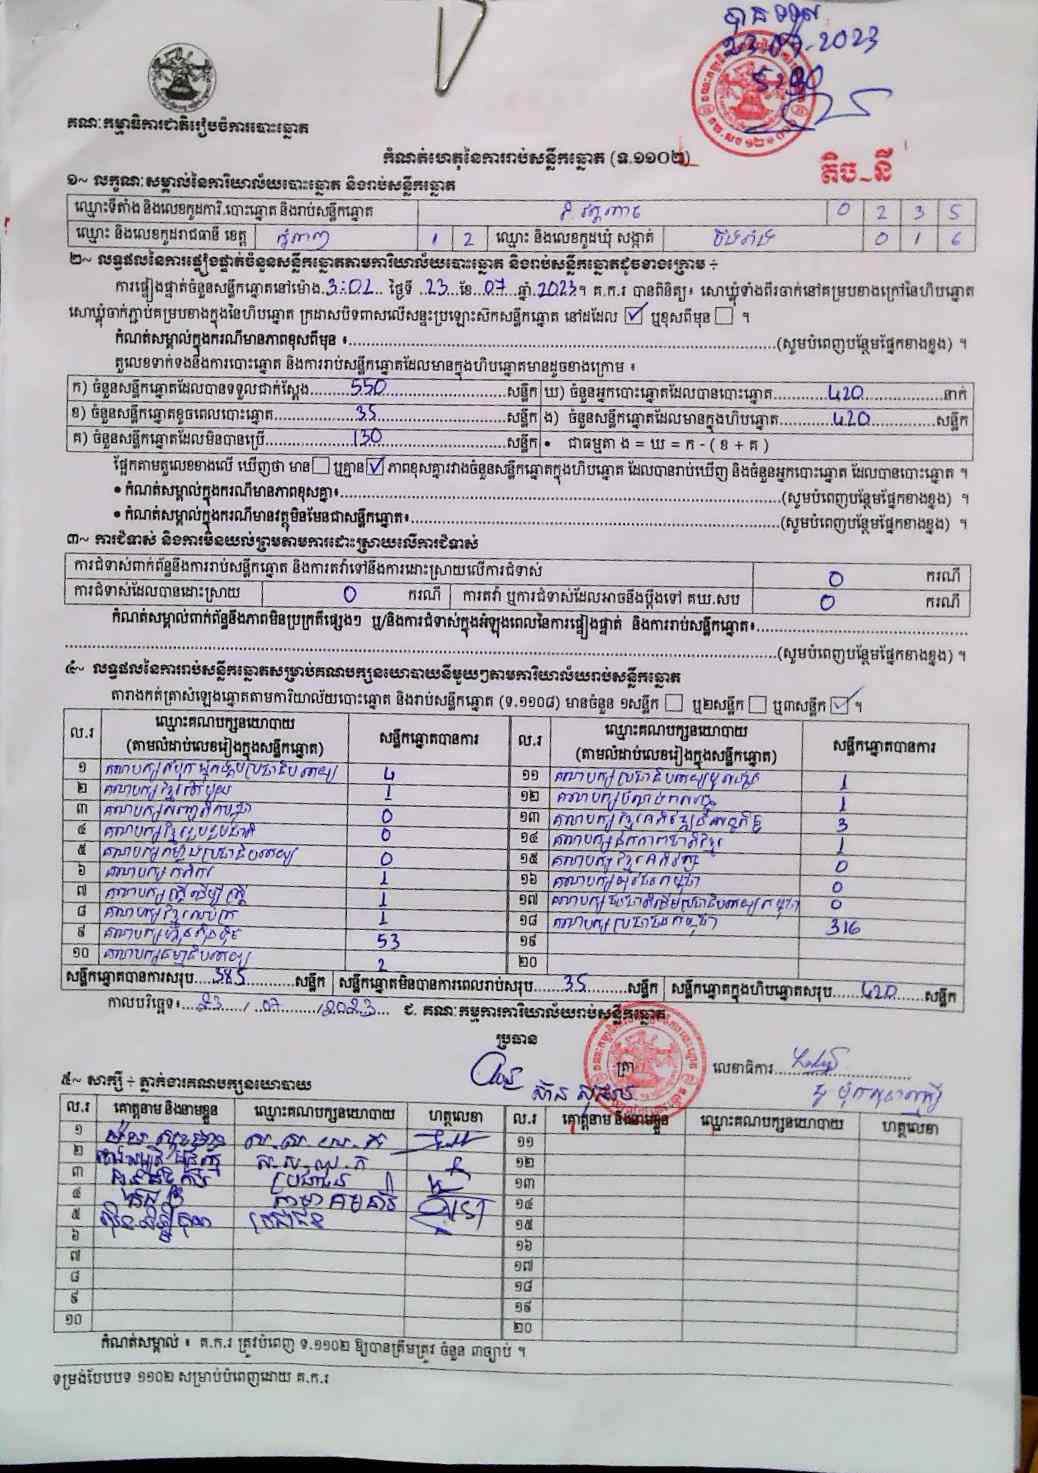 បានទទួល
23.07.2023
5:30
គណៈកម្មាធិការជាតិរៀបចំការបោះឆ្នោត
កំណត់ហេតុនៃការរាប់សន្លឹកឆ្នោត (ទ.១១០២)
តិច_នី
១~ លក្ខណៈសម្គាល់នៃការិយាល័យបោះឆ្នោត និងរាប់សន្លឹកឆ្នោត
ឈ្មោះទីតាំង និងលេខកូដការិ.បោះឆ្នោត និងរាប់សន្លឹកឆ្នោត 0 2 3 5
ឈ្មោះ និងលេខកូដរាជធានី ខេត្ត ភ្នំពេញ 1 2 ឈ្មោះ និងលេខកូដឃុំ សង្កាត់ 0 1 6
២~ លទ្ធផលនៃការផ្ទៀងផ្ទាត់ចំនួនសន្លឹកឆ្នោតតាមការិយាល័យបោះឆ្នោត និងរាប់សន្លឹកឆ្នោតដូចខាងក្រោម ៖
ការផ្ទៀងផ្ទាត់ចំនួនសន្លឹកឆ្នោតនៅម៉ោង 3:02 ថ្ងៃទី 23 ខែ 07 ឆ្នាំ 2023។ គ.ក.រ បានពិនិត្យ៖ សោឃ្លុំទាំងពីរចាក់នៅគម្របខាងក្រៅនៃហិបឆ្នោត
សោឃ្លុំចាក់ភ្ជាប់គម្របខាងក្នុងនៃហិបឆ្នោត ក្រដាសបិទពាសលើសន្ទះប្រឡោះស៊កសន្លឹកឆ្នោត នៅដដែល ☑ ឬខុសពីមុន ☐ ។
កំណត់សម្គាល់ក្នុងករណីមានភាពខុសពីមុន ៖ (សូមបំពេញបន្ថែមផ្នែកខាងខ្នង) ។
តួលេខទាក់ទងនឹងការបោះឆ្នោត និងការរាប់សន្លឹកឆ្នោតដែលមានក្នុងហិបឆ្នោតមានដូចខាងក្រោម ៖
ក) ចំនួនសន្លឹកឆ្នោតដែលបានទទួលជាក់ស្តែង 550 សន្លឹក ឃ) ចំនួនអ្នកបោះឆ្នោតដែលបានបោះឆ្នោត 420 នាក់
ខ) ចំនួនសន្លឹកឆ្នោតខូចពេលបោះឆ្នោត 35 សន្លឹក ង) ចំនួនសន្លឹកឆ្នោតដែលមានក្នុងហិបឆ្នោត 420 សន្លឹក
គ) ចំនួនសន្លឹកឆ្នោតដែលមិនបានប្រើ 130 សន្លឹក • ជាធម្មតា ង = ឃ = ក - ( ខ + គ )
ផ្អែកតាមតួលេខខាងលើ ឃើញថា មាន ☐ ឬគ្មាន ☑ ភាពខុសគ្នារវាងចំនួនសន្លឹកឆ្នោតក្នុងហិបឆ្នោត ដែលបានរាប់ឃើញ និងចំនួនអ្នកបោះឆ្នោត ដែលបានបោះឆ្នោត ។
• កំណត់សម្គាល់ក្នុងករណីមានភាពខុសគ្នា៖ (សូមបំពេញបន្ថែមផ្នែកខាងខ្នង) ។
• កំណត់សម្គាល់ក្នុងករណីមានវត្ថុមិនមែនជាសន្លឹកឆ្នោត៖ (សូមបំពេញបន្ថែមផ្នែកខាងខ្នង) ។
៣~ ការជំទាស់ និងការមិនយល់ព្រមតាមការដោះស្រាយលើការជំទាស់
ការជំទាស់ពាក់ព័ន្ធនឹងការរាប់សន្លឹកឆ្នោត និងការតវ៉ាទៅនឹងការដោះស្រាយលើការជំទាស់ 0 ករណី
ការជំទាស់ដែលបានដោះស្រាយ 0 ករណី ការតវ៉ា ឬការជំទាស់ដែលអាចនឹងប្តឹងទៅ គឃ.សប 0 ករណី
កំណត់សម្គាល់ពាក់ព័ន្ធនឹងភាពមិនប្រក្រតីផ្សេងៗ ឬ/និងការជំទាស់ក្នុងអំឡុងពេលនៃការផ្ទៀងផ្ទាត់ និងការរាប់សន្លឹកឆ្នោត៖
(សូមបំពេញបន្ថែមផ្នែកខាងខ្នង) ។
៤~ លទ្ធផលនៃការរាប់សន្លឹកឆ្នោតសម្រាប់គណបក្សនយោបាយនីមួយៗតាមការិយាល័យរាប់សន្លឹកឆ្នោត
តារាងកត់ត្រាសំឡេងឆ្នោតតាមការិយាល័យបោះឆ្នោត និងរាប់សន្លឹកឆ្នោត (ទ.១១០៨) មានចំនួន ១សន្លឹក ☐ ឬ២សន្លឹក ☐ ឬ៣សន្លឹក ☑ ។
ល.រ ឈ្មោះគណបក្សនយោបាយ (តាមលំដាប់លេខរៀងក្នុងសន្លឹកឆ្នោត) សន្លឹកឆ្នោតបានការ ល.រ ឈ្មោះគណបក្សនយោបាយ (តាមលំដាប់លេខរៀងក្នុងសន្លឹកឆ្នោត) សន្លឹកឆ្នោតបានការ
១ គណបក្សសំបុកឃ្មុំសង្គមប្រជាធិបតេយ្យ 4 ១១ គណបក្សប្រជាធិបតេយ្យមូលដ្ឋាន 1
២ គណបក្សខ្មែររួបរួម 1 ១២ 1
៣ គណបក្សសញ្ជាតិកម្ពុជា 0 ១៣ គណបក្សខ្មែរអភិវឌ្ឍន៍សេដ្ឋកិច្ច 3
៤ គណបក្សខ្មែររួបរួមជាតិ 0 ១៤ គណបក្សឯកភាពជាតិខ្មែរ 1
៥ គណបក្សកម្លាំងប្រជាធិបតេយ្យ 0 ១៥ គណបក្សខ្មែរអភិរក្ស 0
៦ គណបក្សកសិករ 1 ១៦ គណបក្សយុវជនកម្ពុជា 0
៧ គណបក្សស្ត្រីដើម្បីស្ត្រី 1 ១៧ 0
៨ គណបក្សខ្មែរឈប់ក្រ 1 ១៨ គណបក្សប្រជាជនកម្ពុជា 316
៩ គណបក្សហ៊្វុនស៊ិនប៉ិច 53 ១៩
១០ គណបក្សធម្មាធិបតេយ្យ 2 ២០
សន្លឹកឆ្នោតបានការសរុប 385 សន្លឹក សន្លឹកឆ្នោតមិនបានការពេលរាប់សរុប 35 សន្លឹក សន្លឹកឆ្នោតក្នុងហិបឆ្នោតសរុប 420 សន្លឹក
កាលបរិច្ឆេទ៖ 23/07/2023 ជ. គណៈកម្មការការិយាល័យរាប់សន្លឹកឆ្នោត
ប្រធាន
ត្រា លេខាធិការ
៥~ សាក្សី ៖ ភ្នាក់ងារគណបក្សនយោបាយ
ល.រ គោត្តនាម និងនាមខ្លួន ឈ្មោះគណបក្សនយោបាយ ហត្ថលេខា ល.រ គោត្តនាម និងនាមខ្លួន ឈ្មោះគណបក្សនយោបាយ ហត្ថលេខា
១ ១១
២ ១២
៣ ប្រជាជន ១៣
៤ ១៤
៥ ប្រជាជន ១៥
៦ ១៦
៧ ១៧
៨ ១៨
៩ ១៩
១០ ២០
កំណត់សម្គាល់ ៖ គ.ក.រ ត្រូវបំពេញ ទ.១១០២ ឱ្យបានត្រឹមត្រូវ ចំនួន ៣ច្បាប់ ។
ទម្រង់បែបបទ ១១០២ សម្រាប់បំពេញដោយ គ.ក.រ